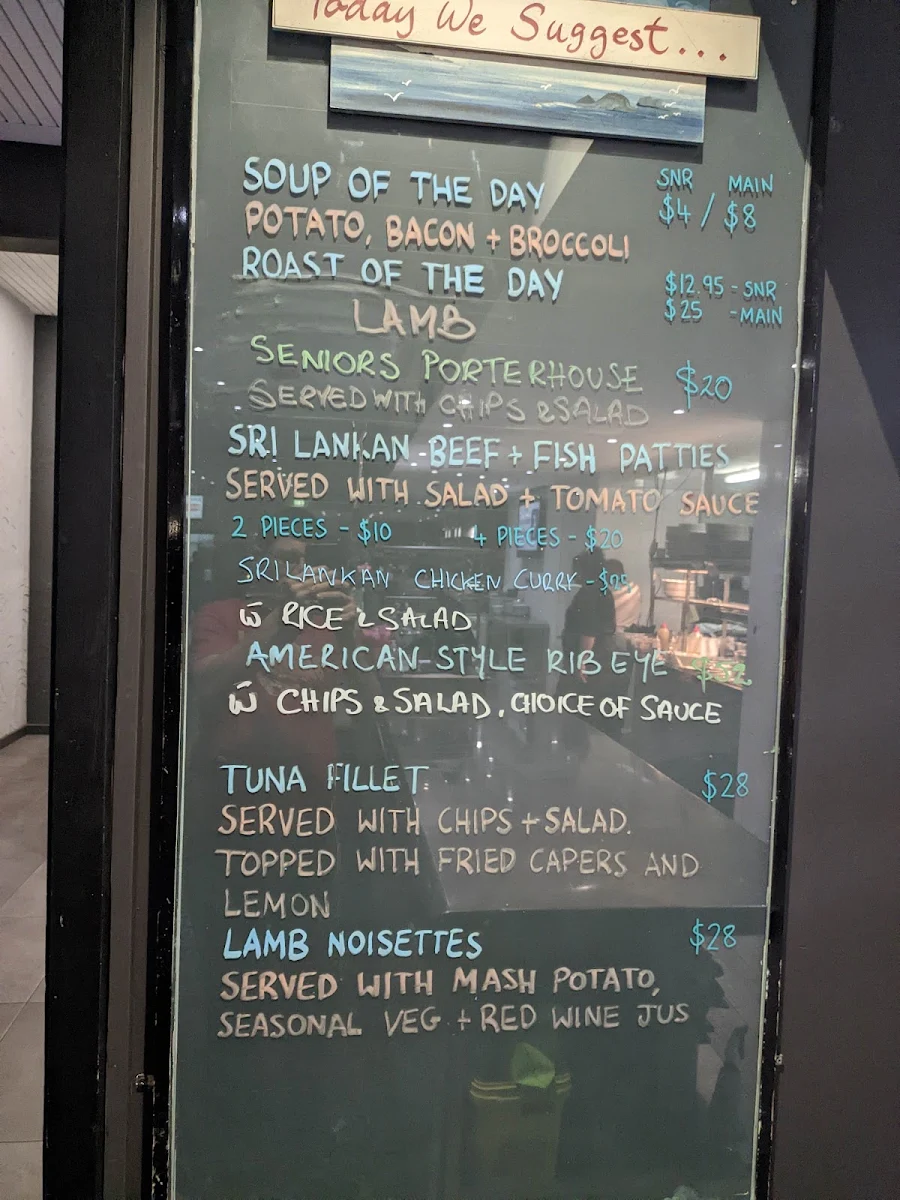 Today We Suggest...
SOUP OF THE DAY SNR MAIN
POTATO, BACON + BROCCOLI $4 / $8
ROAST OF THE DAY $12.95 - SNR
LAMB $25 - MAIN
SENIORS PORTERHOUSE $20
SERVED WITH CHIPS & SALAD
SRI LANKAN BEEF + FISH PATTIES
SERVED WITH SALAD + TOMATO SAUCE
2 PIECES - $10 4 PIECES - $20
SRI LANKAN CHICKEN CURRY -
W̄ RICE & SALAD
AMERICAN-STYLE RIB EYE
W̄ CHIPS & SALAD, CHOICE OF SAUCE
TUNA FILLET $28
SERVED WITH CHIPS + SALAD.
TOPPED WITH FRIED CAPERS AND
LEMON
LAMB NOISETTES $28
SERVED WITH MASH POTATO,
SEASONAL VEG + RED WINE JUS